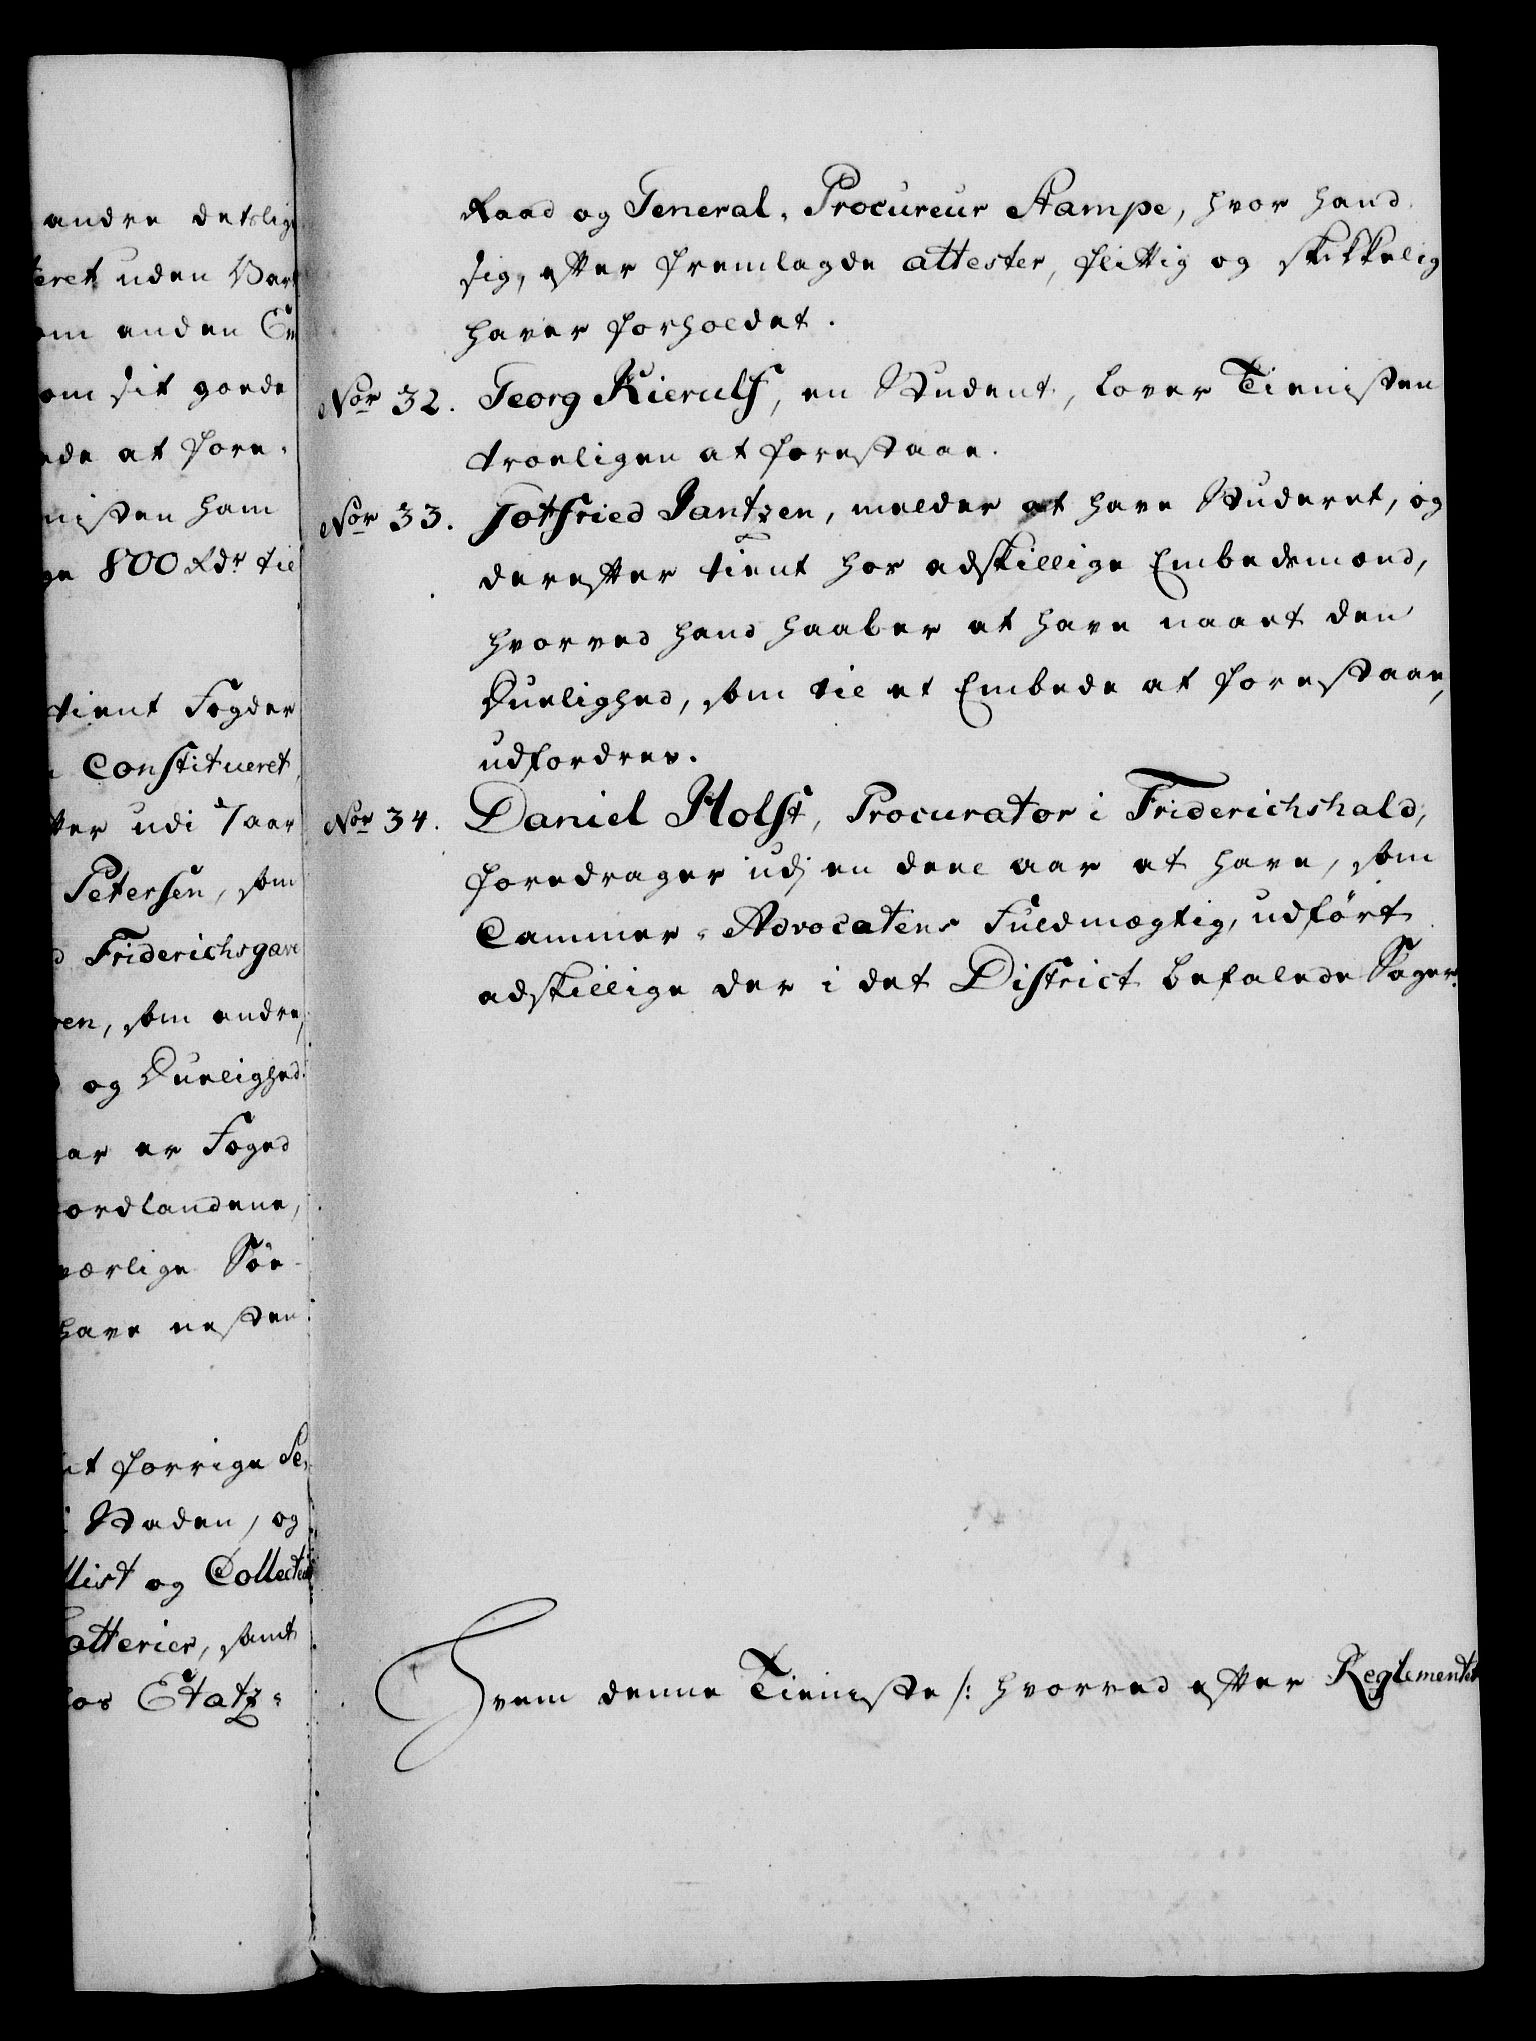 andre detslig
teret uden Var
om anden Em
om sit goede
ede at fore-
nisten ham
ge 800 Rdr til
tient Fogder
Constitueret,
ter udi 7 aar
Petersen, som
d Friderichsgave
en, som andre,
og Duelighed.
ar er Foged
ordlandene,
værlige Søe-
have nesten
et forrige Se-
i Staden, og
llist og Collecteur
Lotterier, samt
hos Etatz-
Raad og General-Procureur Stampe, hvor hand
sig, efter fremlagde attester, flittig og skikkelig
haver forholdet.
Nor 32. Georg Kierulf, en Student, lover Tienisten
troeligen at forestaae.
Nor 33. Gotfried Jantzen, melder at have Studeret, og
derefter tient hos adskillige Embedsmænd,
hvorved hand haaber at have naaet den
Duelighed, som til et Embede at forestaae,
udfordres.
Nor 34. Daniel Holst, Procurator i Friderichshald,
foredrager udj en deel aar at have, som
Cammer-Advocatens Fuldmægtig, udført
adskillige der i det District befalede Sager.
Hvem denne Tieniste /: hvorved efter Reglementet